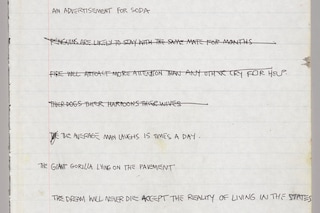 AN ADVERTISEMENT FOR SODA
PENGUINS ARE LIKELY TO STAY WITH THE SAME MATE FOR MONTHS
FIRE WILL ATTRACT MORE ATTENTION THAN ANY OTHER CRY FOR HELP
THEIR DOGS THEIR HARPOONS THEIR WIVES
THE AVERAGE MAN LAUGHS 15 TIMES A DAY.
THE GIANT GORILLA LYING ON THE PAVEMENT
THE DREAM WILL NEVER DIE ACCEPT THE REALITY OF LIVING IN THE STATES